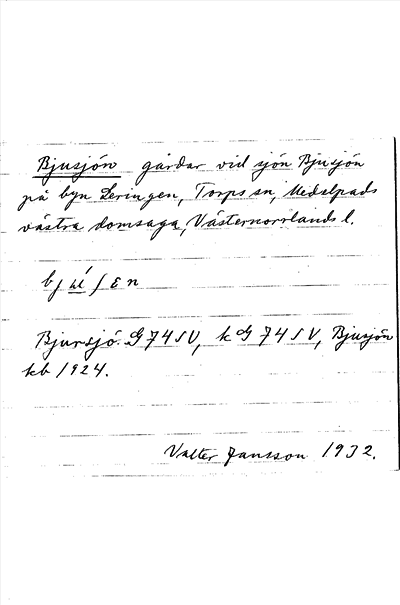 Bjusjön gårdar vid sjön Bjusjön
på byn Leringen, Torps sn, Medelpads
västra domsaga, Västernorrlands l.
Bjursjö. G 74 SV, kG 74 SV, Bjusjön
kb 1924.
Valter Jansson 1932.